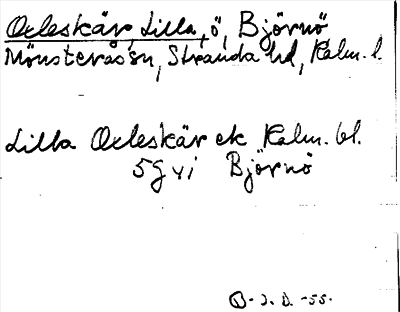 Oxleskär, Lilla, ö, Björnö
Mönsterås sn, Stranda hd, Kalm. l.
Lilla Oxleskär ek Kalm. bl.
5G vi Björnö